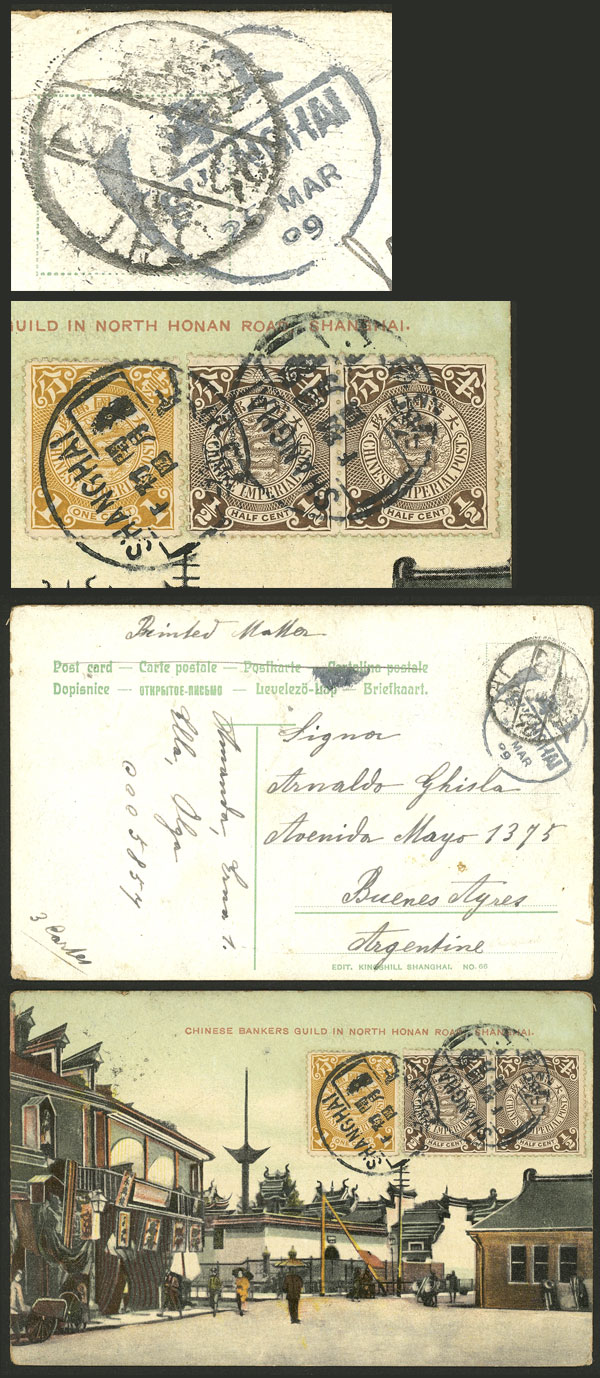 SHANGHAI
25 MAR
09
GUILD IN NORTH HONAN ROAD, SHANGHAI.
CHINESE IMPERIAL POST
1 ONE CENT 1
SHANGHAI
CHINESE IMPERIAL POST
½ HALF CENT ½
SHANGHAI
CHINESE IMPERIAL POST
½ HALF CENT ½
Printed Matter
Post card — Carte postale — Postkarte — Cartolina postale
Dopisnice — ОТКРЫТОЕ-ПИСЬМО — Levelező-Lap — Briefkaart.
SHANGHAI
MAR
09
Signor
Arnaldo Ghisla
Avenida Mayo 1375
Buenos Ayres
Argentine
Amanda,
Ella, Olga
3 Cartes
EDIT. KINGSHILL SHANGHAI. NO. 66
CHINESE BANKERS GUILD IN NORTH HONAN ROAD, SHANGHAI.
SHANGHAI
SHANGHAI
HALF CENT
HALF CENT